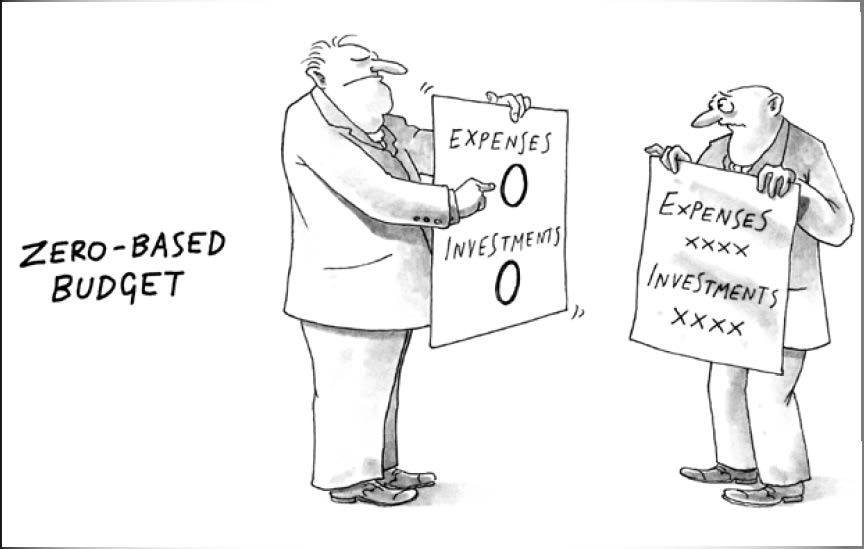 ZERO-BASED
BUDGET
EXPENSES
0
INVESTMENTS
0
EXPENSES
xxxx
INVESTMENTS
xxxx